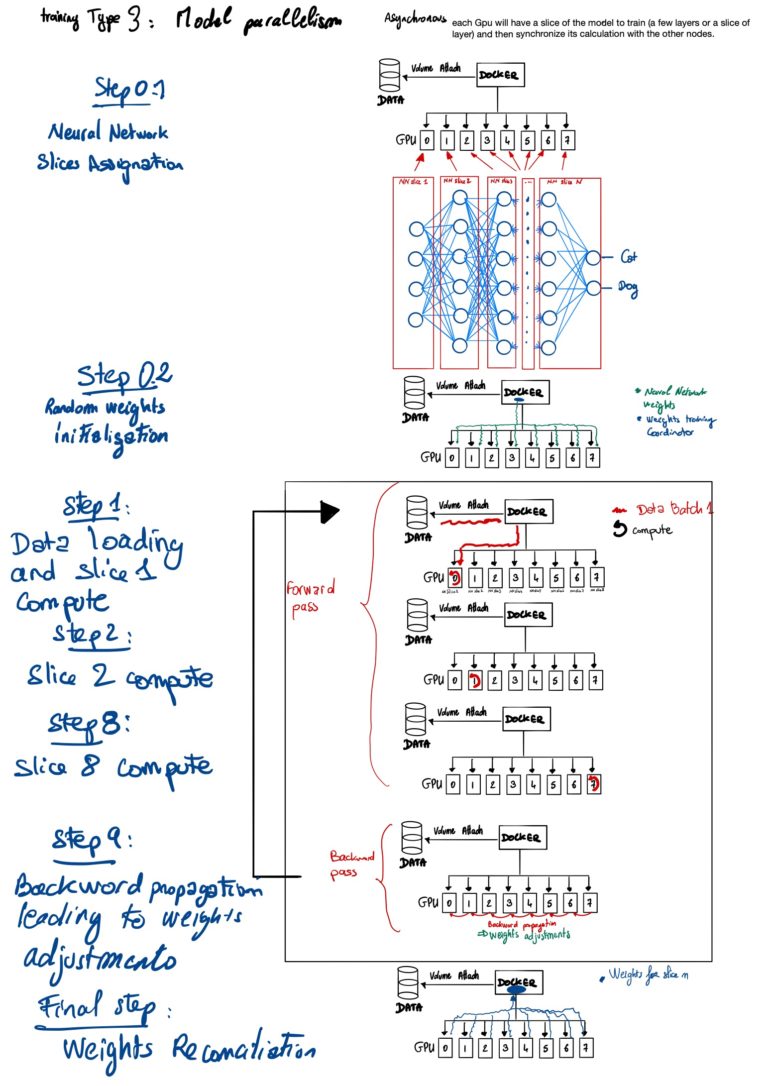 training Type 3: Model parallelism
Asynchronous each Gpu will have a slice of the model to train (a few layers or a slice of
layer) and then synchronize its calculation with the other nodes.
Step 0.1
Neural Network
Slices Assignation
Volume Attach DOCKER
DATA
GPU 0 1 2 3 4 5 6 7
NN slice 1 NN slice 2 NN slice3 ... NN slice N
Cat
Dog
Step 0.2
Random weights
initialization
Volume Attach DOCKER
DATA
GPU 0 1 2 3 4 5 6 7
Neural Network
weights
Weights training
Coordinator
Step 1:
Data loading
and slice 1
compute
Forward
pass
Volume Attach DOCKER
DATA
Data Batch 1
compute
GPU 0 1 2 3 4 5 6 7
Step 2:
Slice 2 compute
Volume Attach DOCKER
DATA
GPU 0 1 2 3 4 5 6 7
Step 8:
Slice 8 compute
Volume Attach DOCKER
DATA
GPU 0 1 2 3 4 5 6 7
Step 9:
Backword propagation
leading to weights
adjustments
Backward
pass
Volume Attach DOCKER
DATA
GPU 0 1 2 3 4 5 6 7
Backward propagation
⇒ Weights adjustments
Final step:
Weights Reconciliation
Volume Attach DOCKER
DATA
Weights for slice n
GPU 0 1 2 3 4 5 6 7